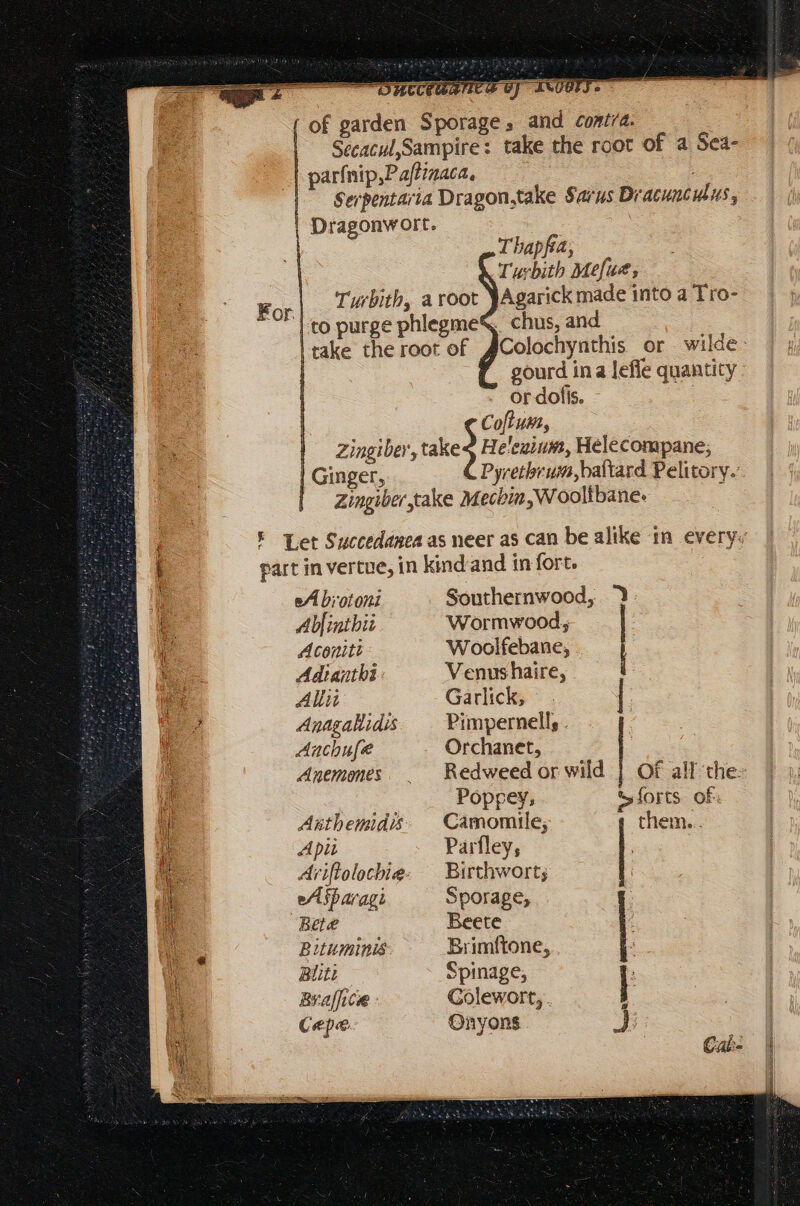 Succedanea of Roots.
of garden Sporage, and contra.
Secacul,Sampire: take the root of a Sea-
parſnip,Paſtinaca.
Serpentaria Dragon,take Sarus Dracunculus,
Dragonwort.
Thapſia,
Turbith Meſuæ,
For Turbith, a root Agarick made into a Tro-
to purge phlegme chus, and
take the root of Colochynthis or wilde
gourd in a leſſe quantity
or doſis.
Coſtum,
Zingiber, take Helenium, Helecompane,
Ginger, Pyrethrum,baſtard Pelitory.
Zingiber,take Mechin,Woolfbane.
Let Succedanea as neer as can be alike in every
part in vertue, in kind and in ſort.
Abrotoni Southernwood,
Abſinthii Wormwood,
Aconiti Woolfebane,
Adianthi Venushaire,
Allii Garlick,
Anagallidis Pimpernell,
Anchuſæ Orchanet,
Anemones Redweed or wild Of all the
Poppey, ſorts of
Anthemidis Camomile, them.
Apii Parſley,
Ariſtolochiæ Birthwort,
Aſparagi Sporage,
Betæ Beete
Bituminis Brimſtone,
Bliti Spinage,
Braſſicæ Colewort,
Cæpæ Onyons
Cal-